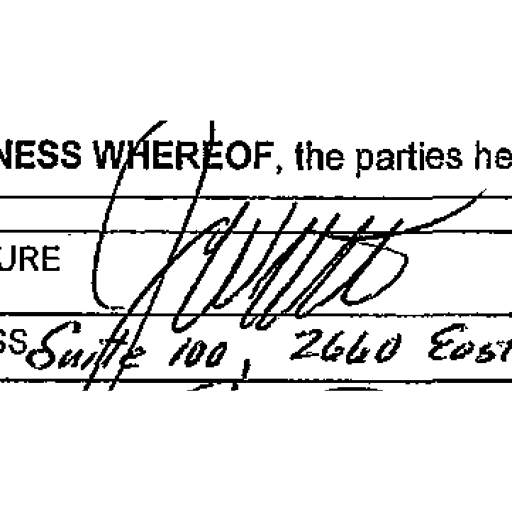 NESS WHEREOF, the parties he
URE
SS Suite 100, 2660 East